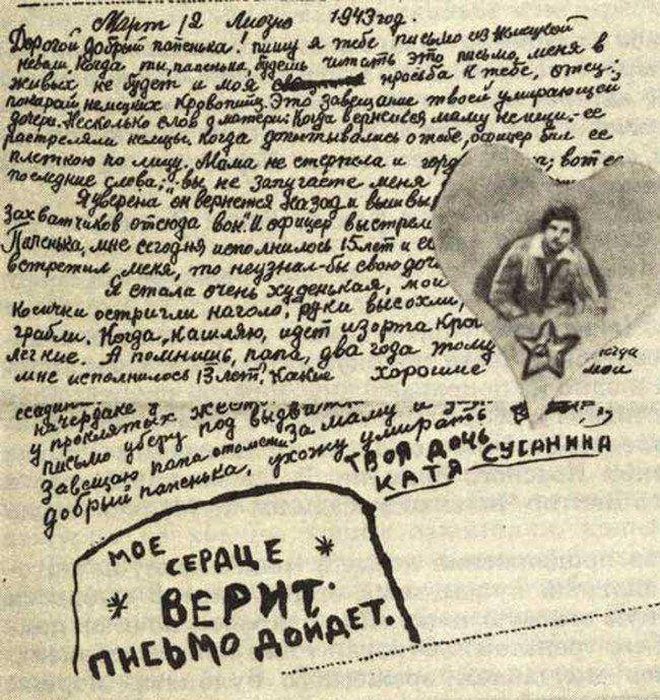 Март 12 Лиозно 1943 год.
Дорогой добрый папенька! пишу я тебе письмо из немецкой
неволи. Когда ты, папенька, будешь читать это письмо, меня в
живых не будет и моя просьба к тебе, отец:
покарай немецких кровопийц. Это завещание твоей умирающей
дочери. Несколько слов о матери: Когда вернешся маму не ищи.-ее
растреляли немцы. Когда допытывались о тебе, офицер бил ее
плеткою по лицу. Мама не стерпела и гордо вот ее
последние слова; "вы не запугаете меня
Я уверена он вернется назад и вышвы
Захватчиков отсюда вон". И офицер выстрел
Папенька, мне сегодня исполнилось 15 лет и ес
встретил меня, то неузнал-бы свою доч
Я стала очень худенькая, мои
Косички остригли наголо, руки высохли,
грабли. Когда кашляю, идет изо рта кро
легкие. А помнишь, папа, два года тому когда
мне исполнилось 13 лет. Какие хорошие мои
чердаке у
у проклятых жест
письмо уберу под
Завещаю папа отомсти за маму и
добрый папенька, ухожу умирать
твоя дочь
Катя Сусанина
МОЕ
СЕРДЦЕ
ВЕРИТ.
ПИСЬМО ДОЙДЕТ.